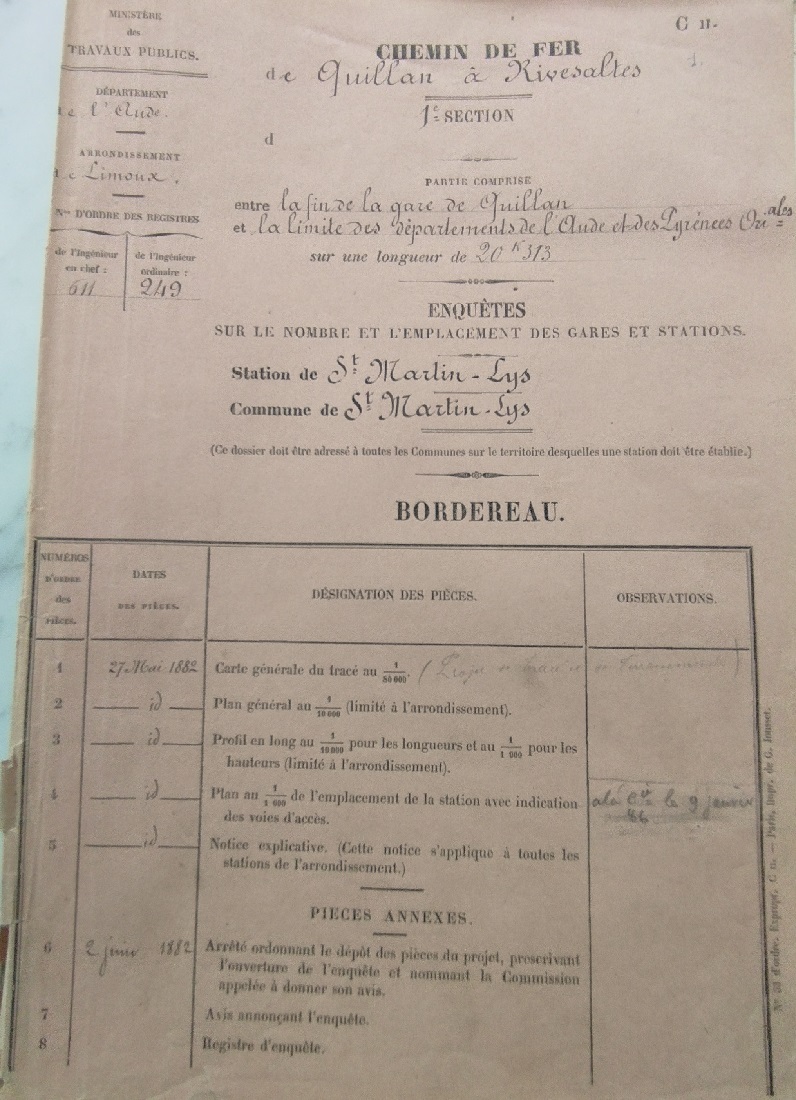 MINISTÈRE
des
TRAVAUX PUBLICS.
DÉPARTEMENT
de l'Aude.
ARRONDISSEMENT
de Limoux.
Nos D'ORDRE DES REGISTRES
de l'Ingénieur
en chef :
611
de l'Ingénieur
ordinaire :
249
C 11.
1.
CHEMIN DE FER
de Quillan à Rivesaltes
1e SECTION
d
PARTIE COMPRISE
entre la fin de la gare de Quillan
et la limite des départements de l'Aude et des Pyrénées Ori.ales
sur une longueur de 20 K 313
ENQUÊTES
SUR LE NOMBRE ET L'EMPLACEMENT DES GARES ET STATIONS.
Station de St Martin-Lys
Commune de St Martin-Lys
(Ce dossier doit être adressé à toutes les Communes sur le territoire desquelles une station doit être établie.)
BORDEREAU.
NUMÉROS
D'ORDRE
des
PIÈCES.
DATES
DES PIÈCES.
DÉSIGNATION DES PIÈCES.
OBSERVATIONS.
1 27 Mai 1882 Carte générale du tracé au 1/80 000.
2 id Plan général au 1/10 000 (limité à l'arrondissement).
3 id Profil en long au 1/10 000 pour les longueurs et au 1/1 000 pour les
hauteurs (limité à l'arrondissement).
4 id Plan au 1/1 000 de l'emplacement de la station avec indication le 9 janvier
des voies d'accès. 86
5 id Notice explicative. (Cette notice s'applique à toutes les
stations de l'arrondissement.)
PIÈCES ANNEXES.
6 2 juin 1882 Arrêté ordonnant le dépôt des pièces du projet, prescrivant
l'ouverture de l'enquête et nommant la Commission
appelée à donner son avis.
7 Avis annonçant l'enquête.
8 Registre d'enquête.
d'ordre. Expropr. C 11. — Paris, Impr. de G. Jousset.